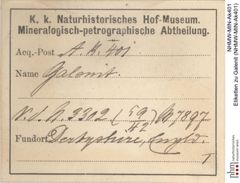 K. k. Naturhistorisches Hof-Museum.
Mineralogisch-petrographische Abtheilung.
Acq.-Post A. k. 401
Name Galenit.
Fundort Derbyshire, Engld.
NHMW-MIN-Ak401
Etiketten zu Galenit (NHMW-MIN-Ak401)